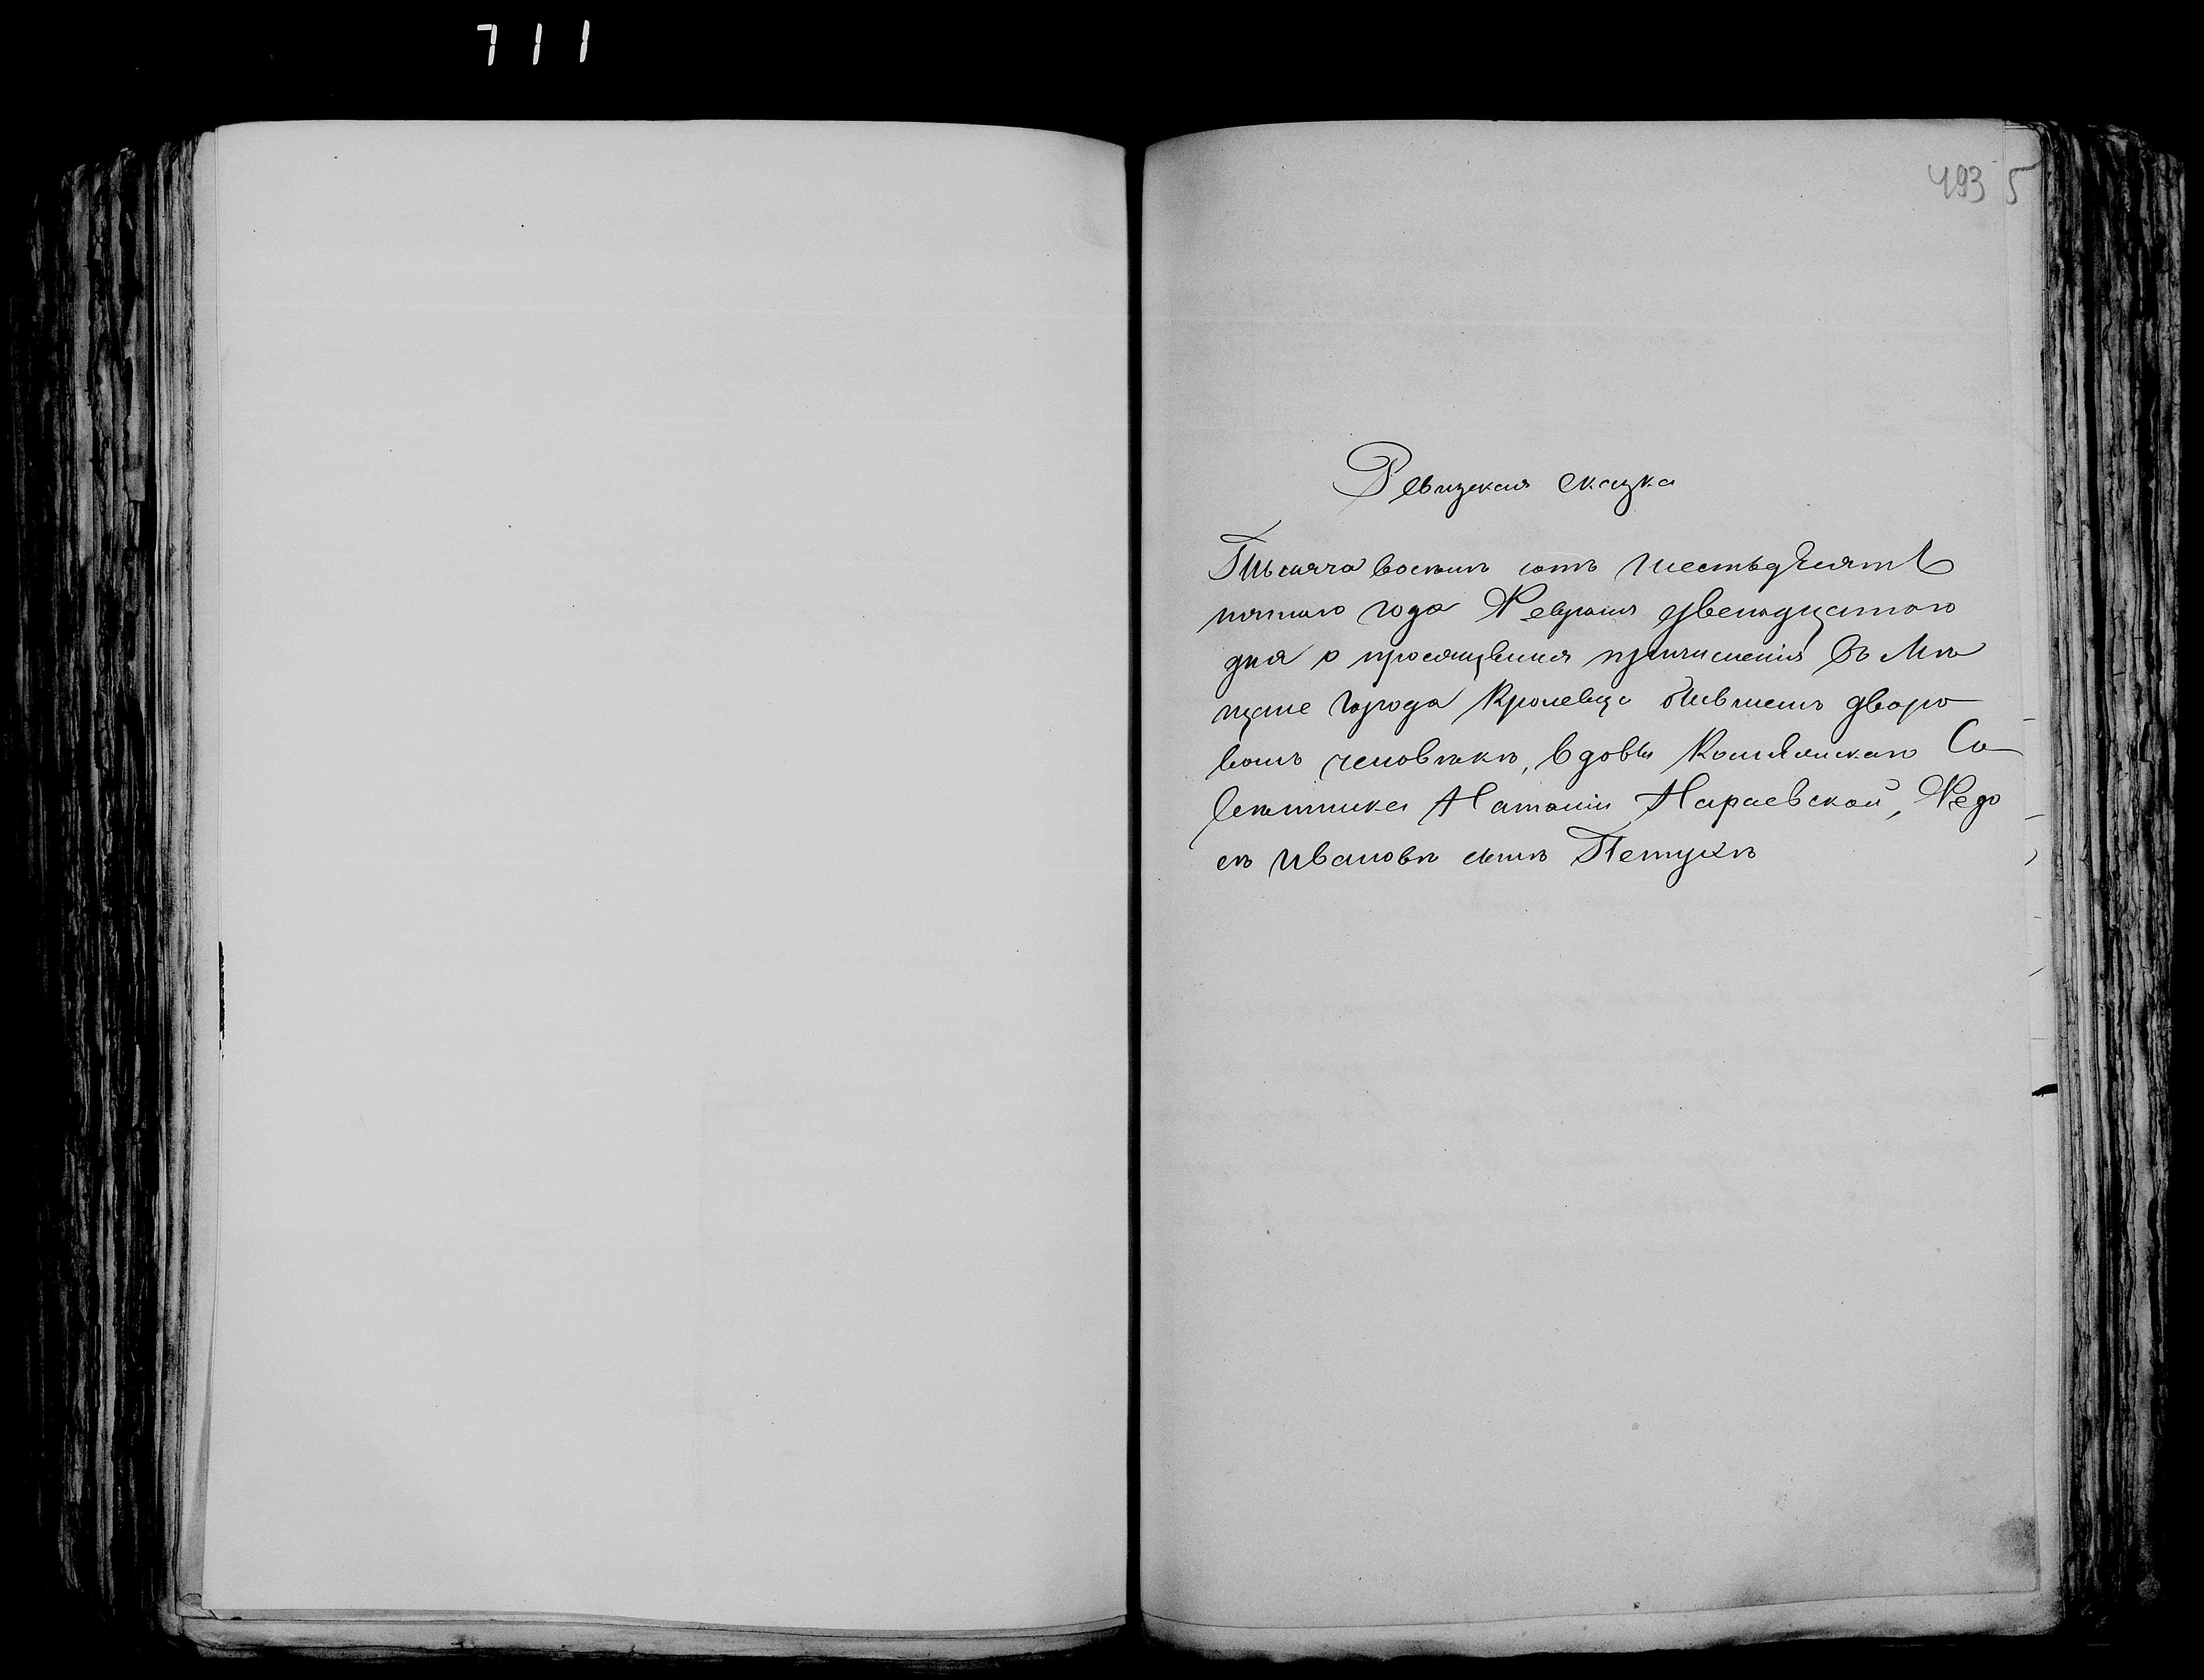 711
493 5
Ревизская сказка
Тысяча восемь сотъ шестьдесятъ
пятого года Февраля двенадцатого
дня о просящемся причисленія въ Мѣ
щане города Кролевца бывшемъ дворо
вомъ человѣкѣ, вдовы Коллежскаго Со
вѣтника Наталіи Нараевской, Ѳедо
рѣ Ивановѣ сынѣ Петухѣ